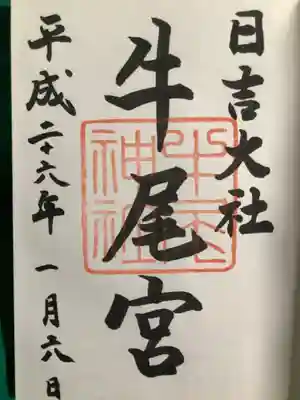 日吉大社
牛尾宮
牛尾
神社
平成二十六年 一月六日